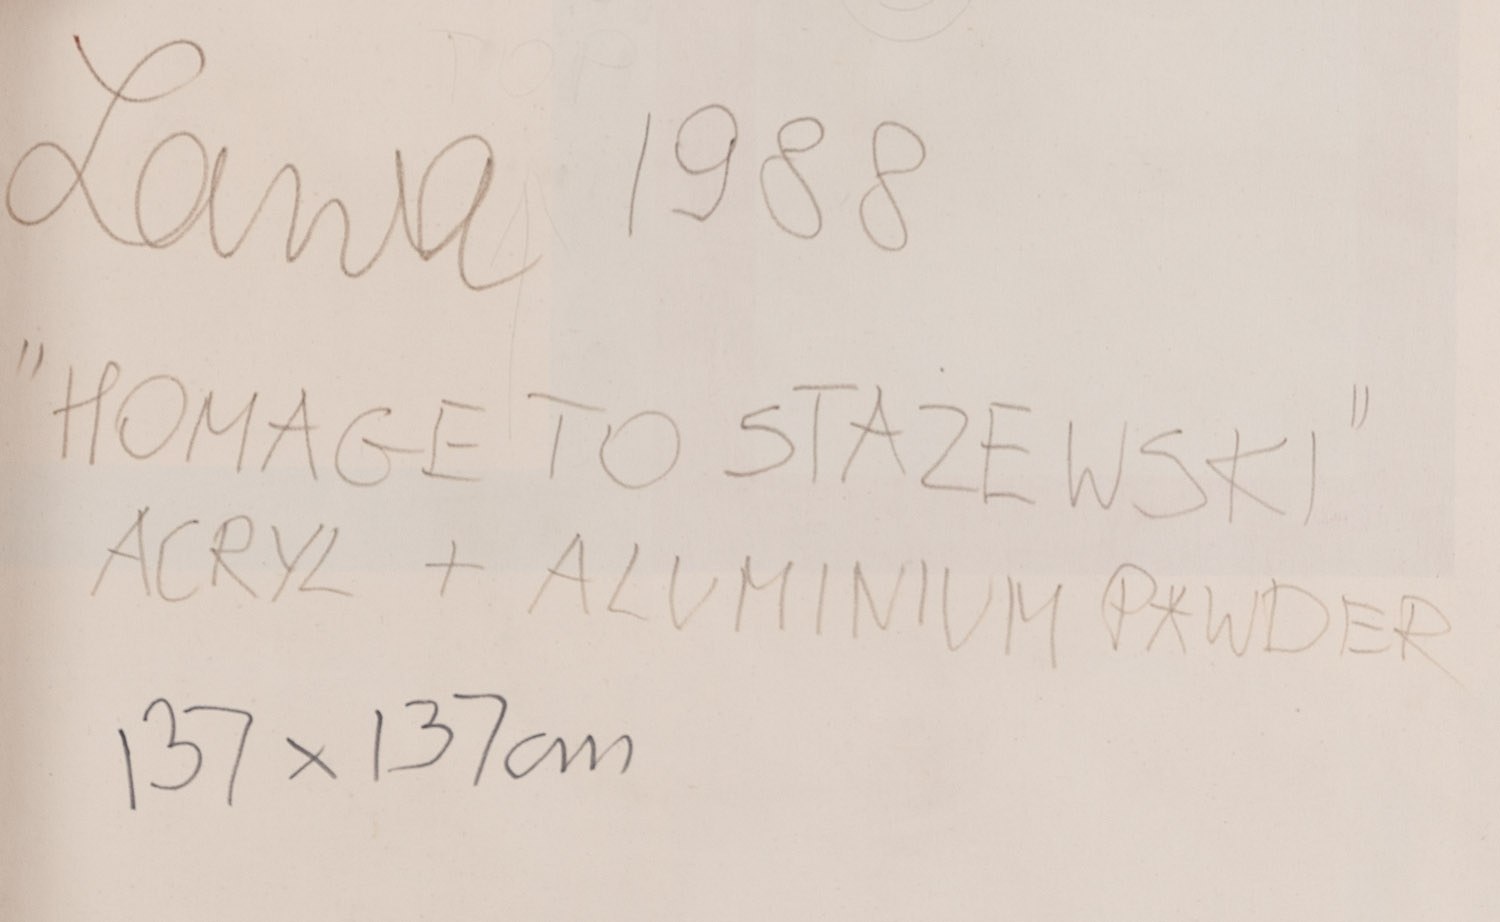 TOP
1988
"HOMAGE TO STAZEWSKI"
ACRYL + ALUMINIUM PAWDER
137 x 137cm